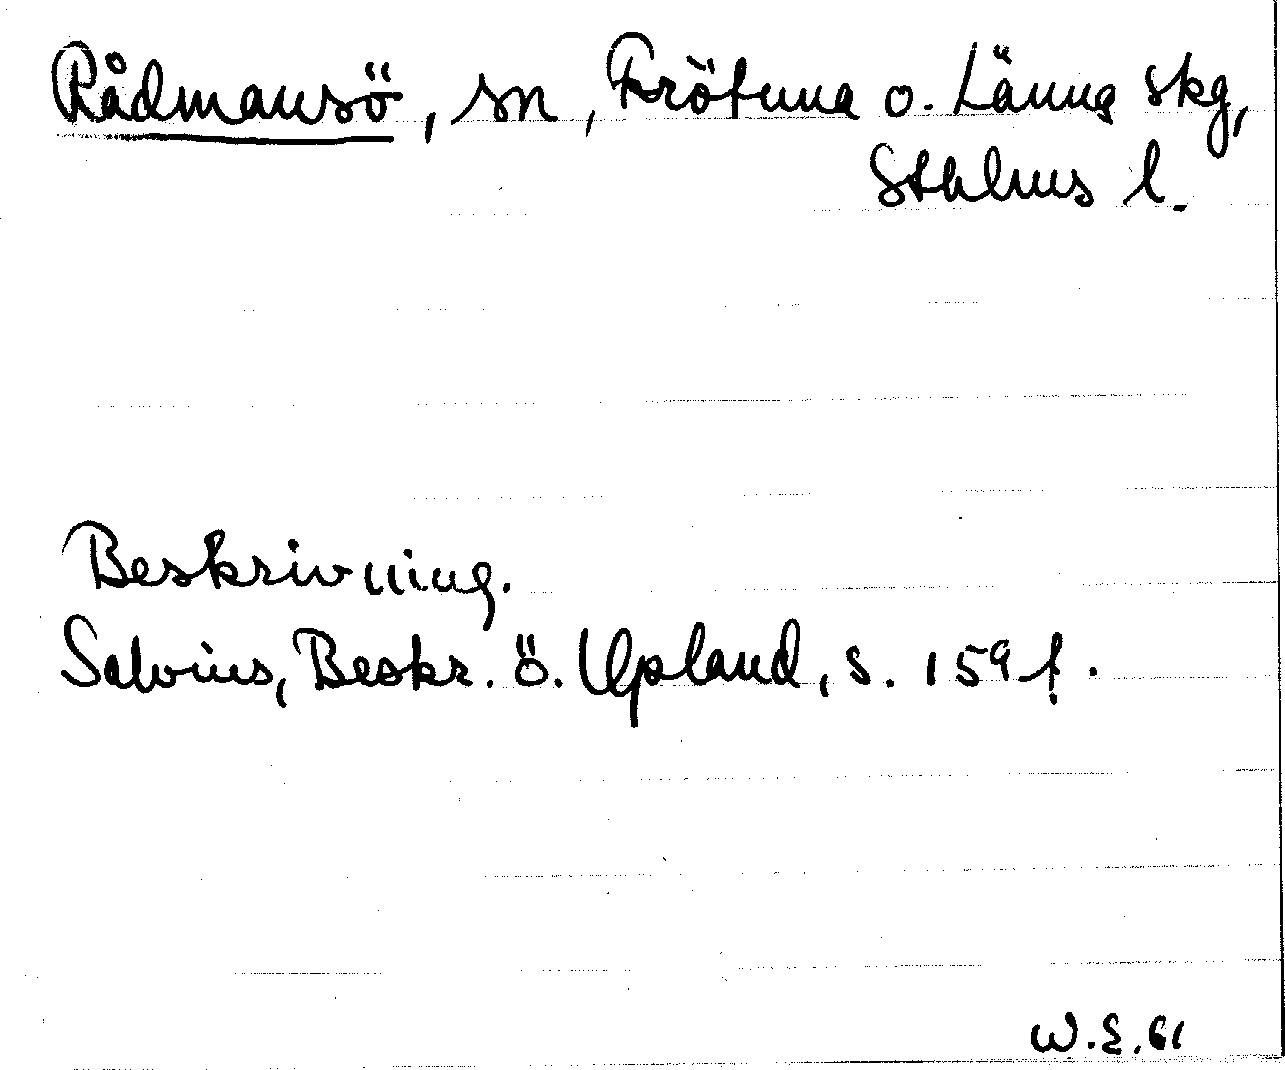 Rådmansö, sn, Frötuna o. Länna skg,
Sthlms l.
Beskrivning.
Salvius, Beskr. ö. Upland, s. 159 f.
W.E. 61